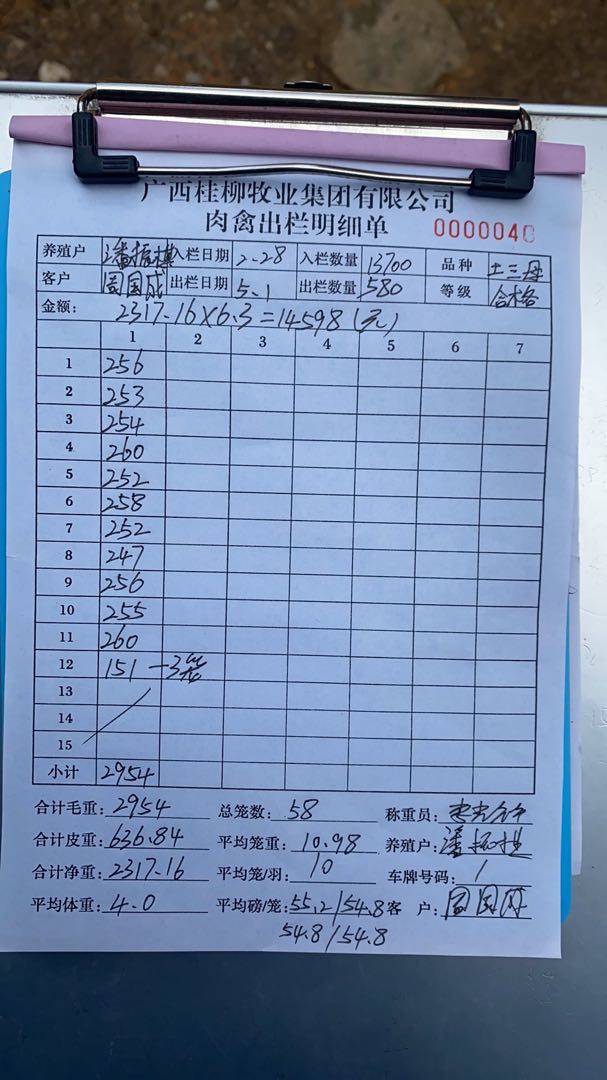 广西桂柳牧业集团有限公司
肉禽出栏明细单 0000040
养殖户 潘振棋 入栏日期 2-28 入栏数量 13700 品种 土三母
客户 周国成 出栏日期 5.1 出栏数量 580 等级 合格
金额: 2317.16×6.3=14598(元)
1 2 3 4 5 6 7
1 256
2 253
3 254
4 260
5 252
6 258
7 252
8 247
9 256
10 255
11 260
12 151 —3笼
13
14
15
小计 2954
合计毛重: 2954 总笼数: 58 称重员:
合计皮重: 636.84 平均笼重: 10.98 养殖户: 潘振棋
合计净重: 2317.16 平均笼/羽: 10 车牌号码: /
平均体重: 4.0 平均磅/笼: 55.2/54.8 客 户: 周国成
54.8/54.8